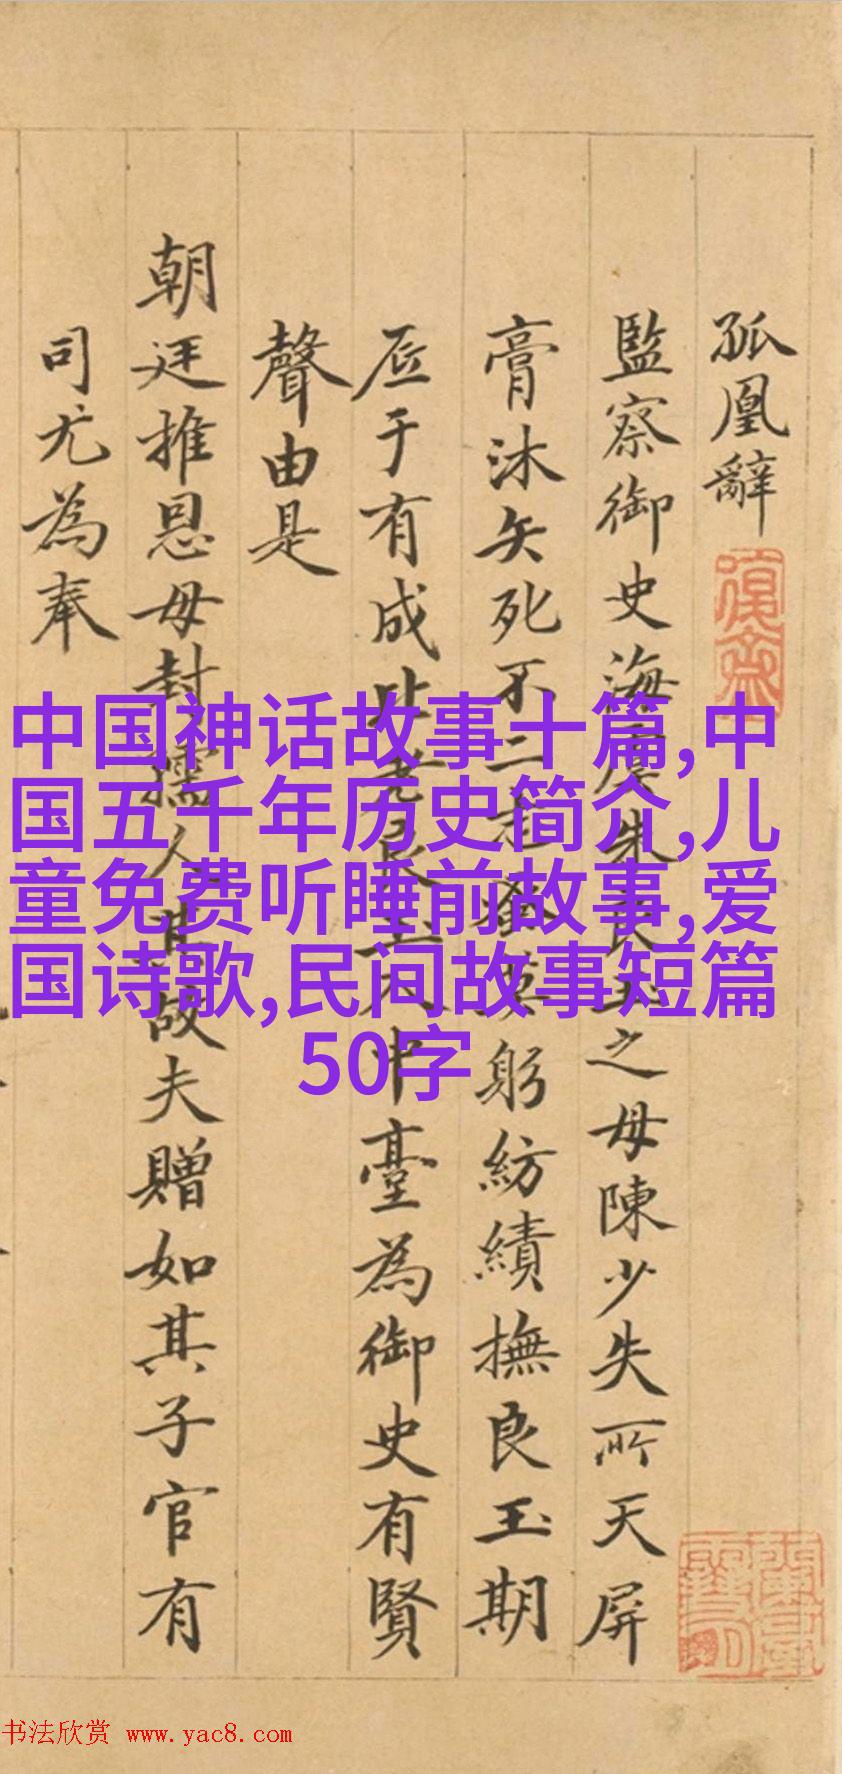 孤凰辭
監察御史海虞朱良玉之母陳少失所天屏
膏沐矢死不二志瘁躬紡績撫良玉期
底于有成
中臺為御史有賢
聲由是
朝廷推恩母封孺人其故夫贈如其子官有
司尤為奉
中国神话故事十篇,中
国五千年历史简介,儿
童免费听睡前故事,爱
国诗歌,民间故事短篇
50字
书法欣赏 www.yac8.com